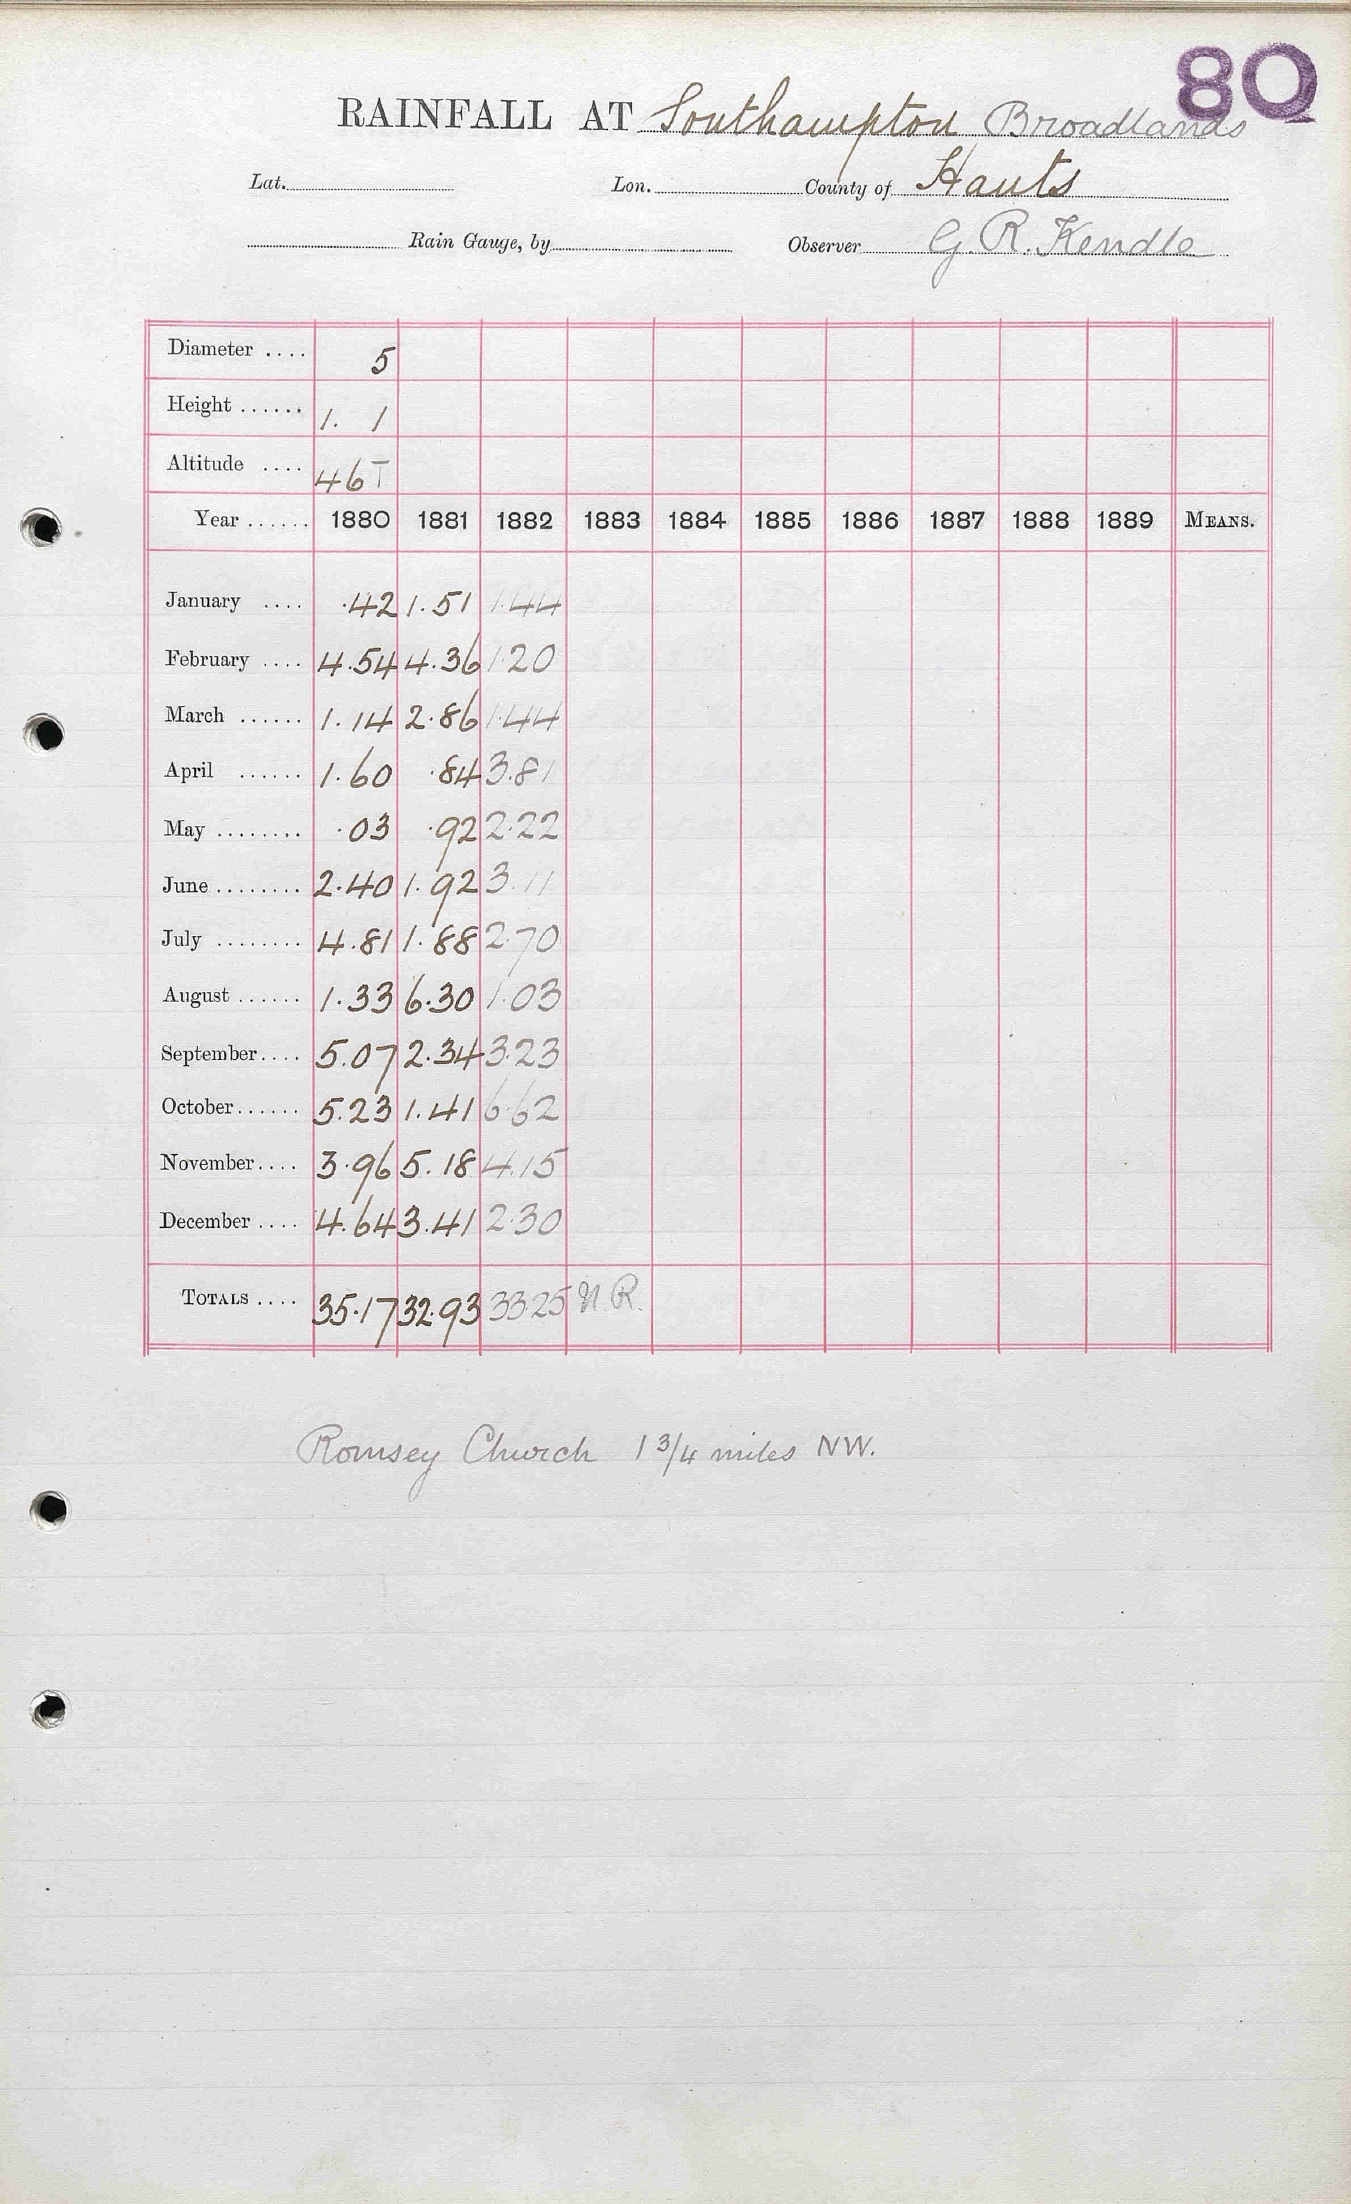 8Q
RAINFALL AT Southampton Broadlands
Lat. Lon. County of Hants
Rain Gauge, by Observer G. R. Kendle
Diameter .... 5
Height ...... 1. 1
Altitude .... 46 T
Year ...... 1880 1881 1882 1883 1884 1885 1886 1887 1888 1889 MEANS.
January .... .42 1.51 1.44
February .... 4.54 4.36 1.20
March ...... 1.14 2.86 1.44
April ...... 1.60 .84 3.81
May ........ .03 .92 2.22
June ........ 2.40 1.92 3.11
July ........ 4.81 1.88 2.70
August ...... 1.33 6.30 1.03
September.... 5.07 2.34 3.23
October...... 5.23 1.41 6.62
November.... 3.96 5.18 4.15
December .... 4.64 3.41 2.30
TOTALS .... 35.17 32.93 33.25 N.R.
Romsey Church 1 3/4 miles NW.